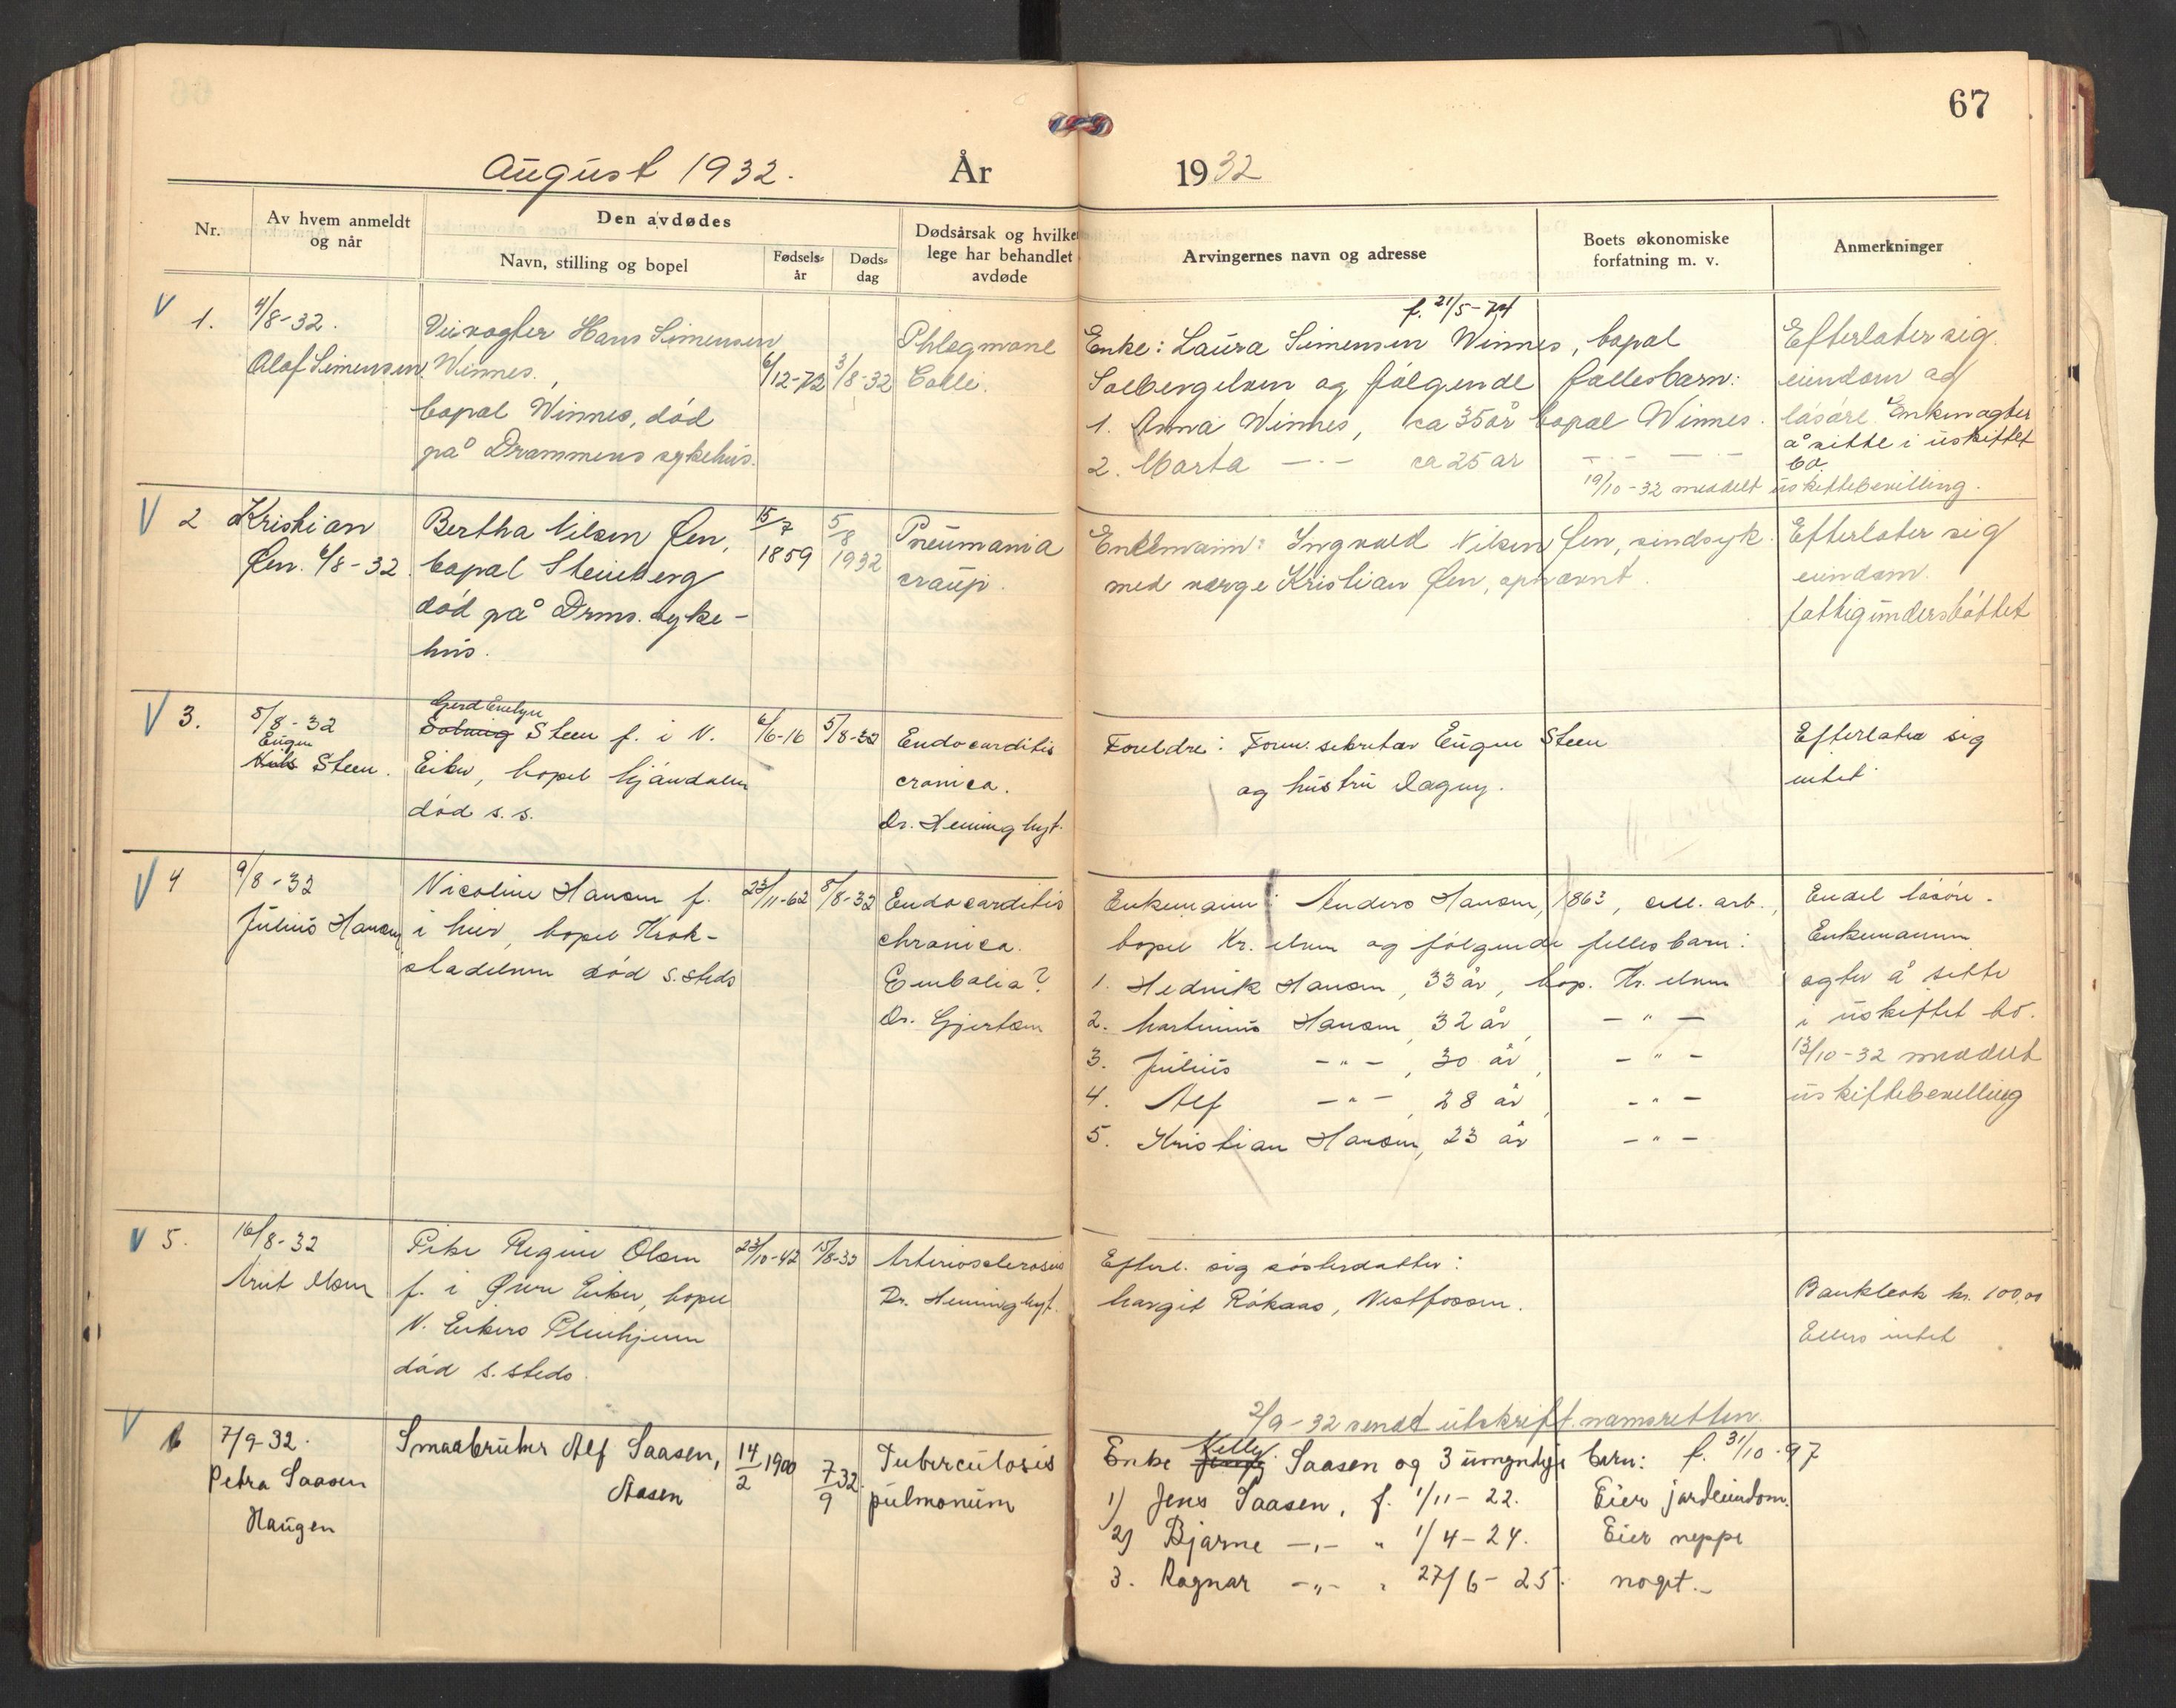 67
August 1932. År 1932
Nr.
Av hvem anmeldt og når
Den avdødes
Navn, stilling og bopel
Fødsels-år
Døds-dag
Dødsårsak og hvilke lege har behandlet avdøde
Arvingernes navn og adresse
Boets økonomiske forfatning m. v.
Anmerkninger
V 1.
4/8-32.
Olaf Simensen
Veivogter Hans Simensen
Winnes.
bopæl Winnes, död
på Drammens sykehus.
6/12-72
3/8-32
Phlegmone
Colli.
f. 21/5-74
Enke: Laura Simensen Winnes, bopæl
Solbergelven og fölgende fællesbarn:
1. Anna Winnes, ca 35 år bopæl Winnes.
2. Marta —·— ca 25 år —·— —·—
19/10-32 meddelt uskiftebevilling.
Efterlater sig
eiendom og
lösöre. Enken agter
å sitte i uskiftet
bo
V 2
Kristian
Øen. 6/8-32.
Bertha Nilsen Øen,
bopæl Steinberg
död på Drms. syke-
hus.
15/7
1859
5/8
1932
Pneumania
croup.
Enkemann: Ingvald Nilsen Øen, sindsyk
med verge Kristian Øen, opnævnt.
Efterlater sig
eiendom.
fattigunderstöttet
V 3.
8/8-32
Eugen
Steen.
Gerd Evelyn
Solveig Steen f. i N.
Eiker, bopel Mjöndalen
död s. s.
6/6-16
5/8-32
Endocarditis
cronica.
Dr. Heming hyt.
Foreldre: Forv. sekretær Eugen Steen
og hustru Dagny.
Efterlater sig
intet
V 4
9/8-32
Julius Hansen
Nicoline Hansen f.
i Lier, bopel Krok-
stadelven död s. steds
23/11-62
8/8-32
Endocarditis
chronica.
Embolia?
Dr. Gjertsen
Enkemann: Anders Hansen, 1863, cell. arb.,
bopel Kr. elven og fölgende felles barn:
1. Hedvik Hansen, 33 år, bop. Kr. elven
2. Martinius Hansen, 32 år, — " —
3. Julius — " —, 30 år, — " —
4. Alf — " —, 28 år, — " —
5. Kristian Hansen, 23 år — " —
Endel lösöre.
Enkemannen
agter å sitte
i uskiftet bo.
13/10-32 meddelt
uskiftebevilling
V 5.
16/8-32
Olsen
Pike Regine Olsen
f. i Øvre Eiker, bopel
N. Eikers Pleiehjem
död s. steds
23/10-42
15/8-32
Arteriosclerosis
Dr. Heming hyt.
Efterl. sig sösterdatter:
Margit Rökaas, Vestfossen.
Bankbok kr. 100,00
Ellers intet
2/9-32 sendt utskrift namsretten.
V 6
7/9-32.
Petra Saasen
Haugen
Smaabruker Alf Saasen,
Aasen
14/2 1900
7/9 32.
Tuberculosis
pulmonum
Kelly
Enke Saasen og 3 umyndige barn: f. 31/10-97
1) Jens Saasen, f. 1/11-22.
2) Bjarne —"— " 1/4-24.
3. Ragnar —"— " 27/6-25.
Eier jordeiendom.
Eier neppe
noget.